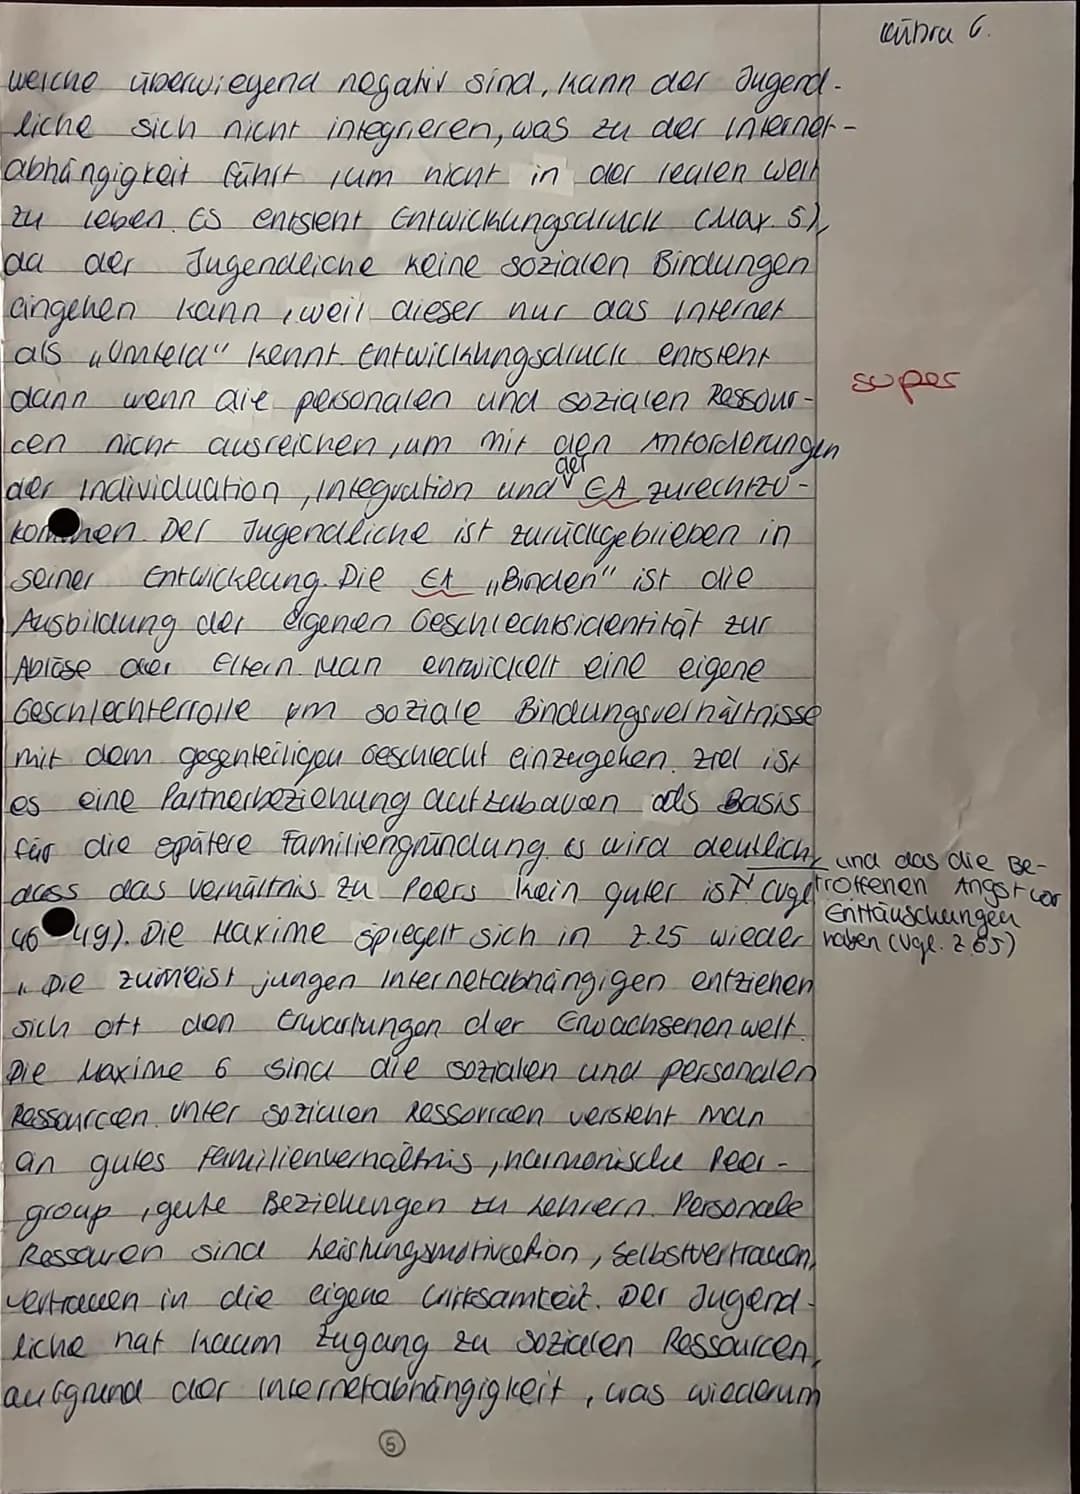 Kübra G.
welche überwiegend negativ sind, kann der Jugend-
liche sich nicht integrieren, was zu der Internet-
abhängigkeit führt, um nicht in der realen Welt
zu leben. Es entsteht Entwicklungsdruck (Max. 5),
da der Jugendliche keine sozialen Bindungen
eingehen kann, weil dieser nur das Internet
als „Umfeld" kennt. Entwicklungsdruck entsteht
dann wenn die personalen und sozialen Ressour-
super
cen nicht ausreichen, um mit den Anforderungen
der Individuation, Integration und der EA zurechtzu-
kommen. Der Jugendliche ist zurückgeblieben in
seiner Entwicklung. Die EA „Binden" ist die
Ausbildung der eigenen Geschlechtsidentität zur
Ablöse der Eltern. Man entwickelt eine eigene
Geschlechterrolle um soziale Bindungsverhältnisse
mit dem gegenteiligen Geschlecht einzugehen. Ziel ist
es eine Partnerbeziehung aufzubauen als Basis
für die spätere Familiengründung. Es wird deutlich,
dass das Verhältnis zu Peers kein guter ist (vgl.
und das die Be-
troffenen Angst vor
Enttäuschungen
haben (Vgl. Z.65)
46-49). Die Maxime spiegelt sich in Z.25 wieder
„Die zumeist jungen Internetabhängigen entziehen
sich oft den Erwartungen der Erwachsenenwelt.
Die Maxime 6 sind die sozialen und personalen
Ressourcen. Unter sozialen Ressoricen versteht man
an gutes Familienverhältnis, harmonische Peer-
group, gute Beziehungen zu Lehrern. Personale
Ressouren sind Leistungsmotivation, Selbstvertrauen,
Vertrauen in die eigene Wirksamkeit. Der Jugend-
liche hat kaum Zugang zu sozialen Ressourcen,
aufgrund der Internetabhängigkeit, was wiederum
5